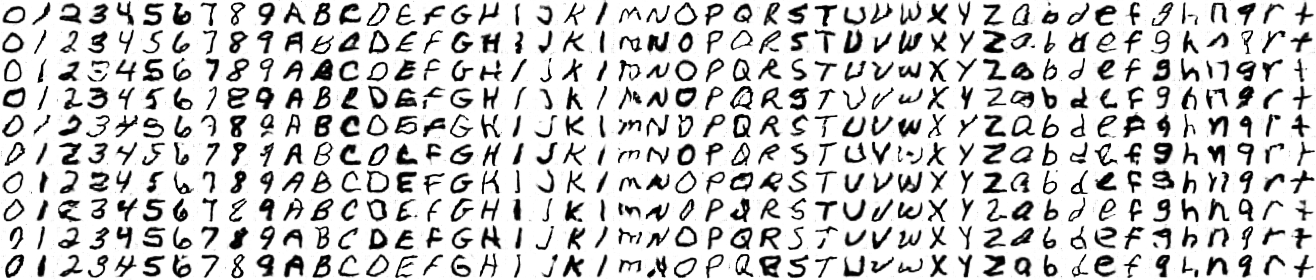 0 1 2 3 4 5 6 7 8 9 A B C D E F G H I J K l m N O P Q R S T U V W X Y Z a b d e f g h n q r t
0 1 2 3 4 5 6 7 8 9 A B C D E F G H I J K l m N O P Q R S T U V W X Y Z a b d e f g h n q r t
0 1 2 3 4 5 6 7 8 9 A B C D E F G H I J K l m N O P Q R S T U V W X Y Z a b d e f g h n q r t
0 1 2 3 4 5 6 7 8 9 A B C D E F G H I J K l m N O P Q R S T U V W X Y Z a b d e f g h n q r t
0 1 2 3 4 5 6 7 8 9 A B C D E F G H I J K l m N O P Q R S T U V W X Y Z a b d e f g h n q r t
0 1 2 3 4 5 6 7 8 9 A B C D E F G H I J K l m N O P Q R S T U V W X Y Z a b d e f g h n q r t
0 1 2 3 4 5 6 7 8 9 A B C D E F G H I J K l m N O P Q R S T U V W X Y Z a b d e f g h n q r t
0 1 2 3 4 5 6 7 8 9 A B C D E F G H I J K l m N O P Q R S T U V W X Y Z a b d e f g h n q r t
0 1 2 3 4 5 6 7 8 9 A B C D E F G H I J K l m N O P Q R S T U V W X Y Z a b d e f g h n q r t
0 1 2 3 4 5 6 7 8 9 A B C D E F G H I J K l m N O P Q R S T U V W X Y Z a b d e f g h n q r t